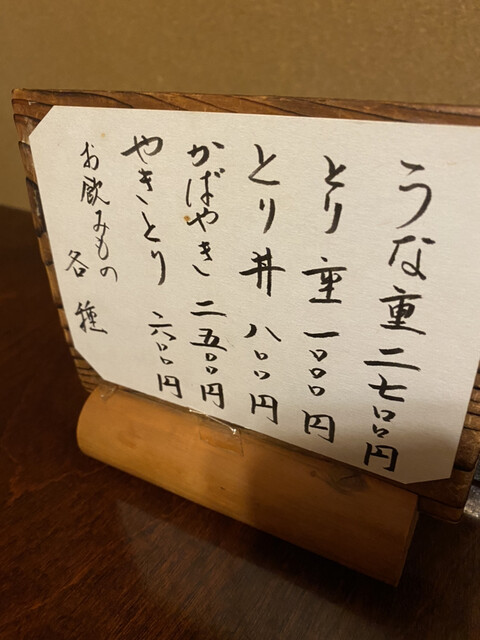 うな重 二七〇〇円
とり重 一〇〇〇円
とり丼 八〇〇円
かばやき 二五〇〇円
やきとり 六〇〇円
お飲みもの 各種